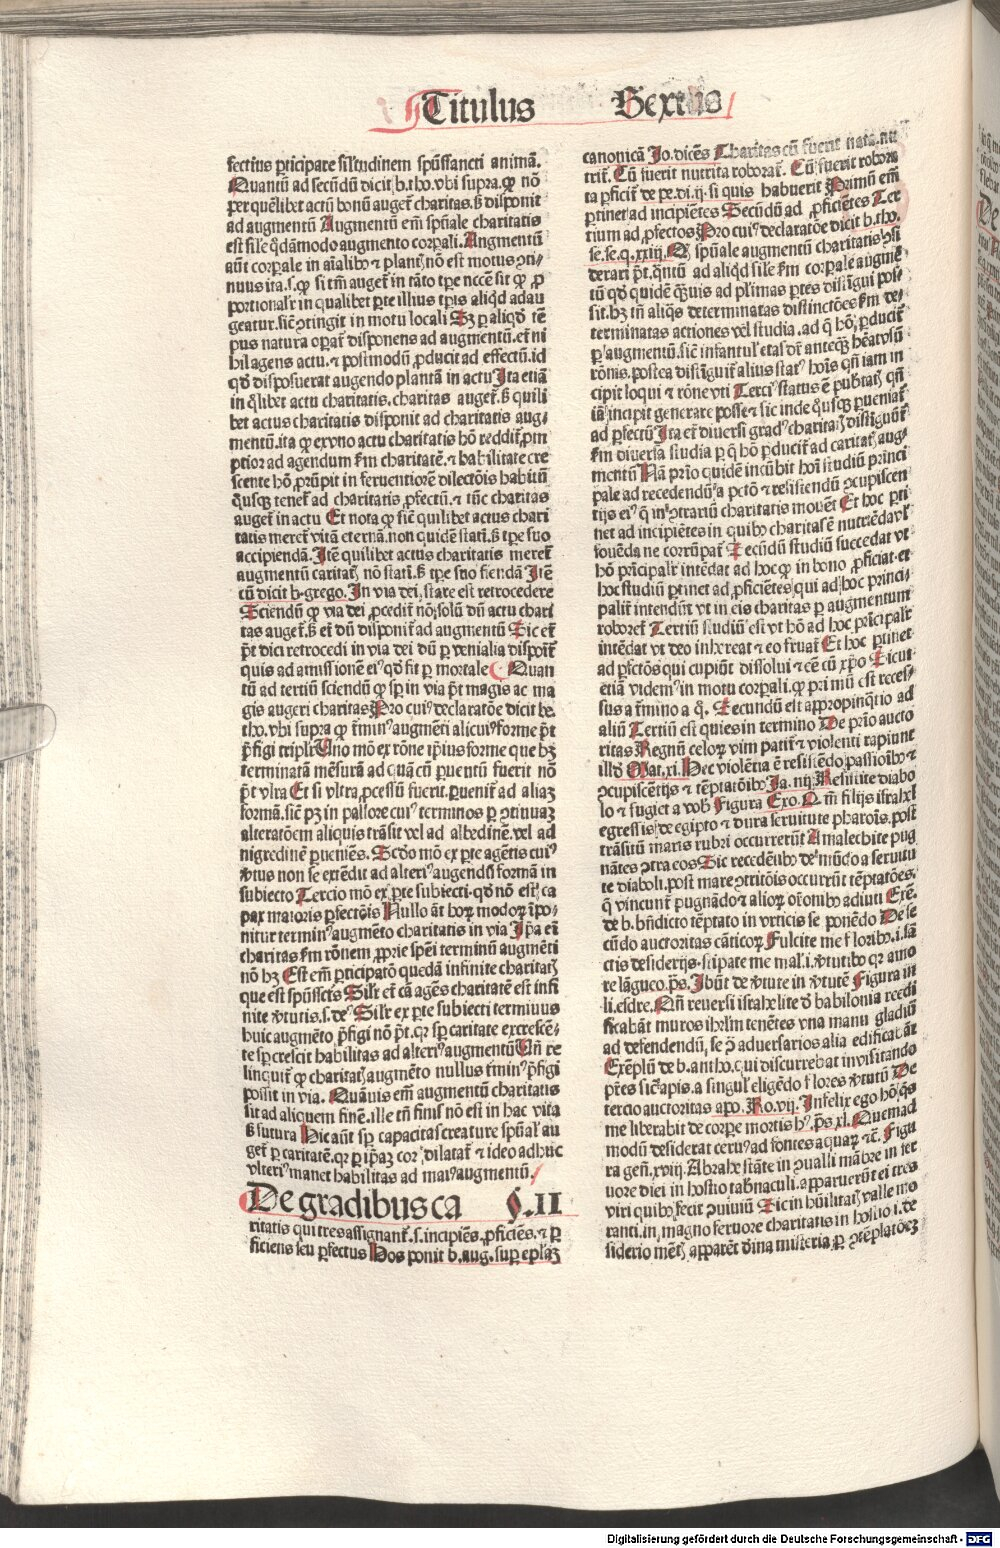 Titulus Sextus
fectius ꝑticipare sil'itudinem spũssancti animã.
Quantũ ad secũdũ dicit b. tho. vbi supra. ꝙ nõ
per quẽlibet actũ bonũ auget᷑ charitas. ß disponit
ad augmentũ Augmentũ em̃ spũale charitatis
est sil'e q̃dãmodo augmento corꝑali. Augmentũ
aũt corꝑale in aĩalibꝰ ⁊ plantꝭ nõ est motus ꝯti-
nuus ita .s. ꝙ si tm̃ auget᷑ in tãto tꝑe necc̃e sit ꝙ ꝓ
portionalr̃ in qualibet ꝑte illius tꝑis aliqd adau
geatur. sic̃ ꝯtingit in motu locali Sꝫ ꝑ aliqd tẽ
pus natura oꝑat᷑ disponens ad augmentũ. et ni
hil agens actu. ⁊ postmodũ ꝓducit ad effectũ. id
qd disposuerat augendo plantã in actu Ita etiã
in q̃libet actu charitatis. charitas auget᷑. ß quili
bet actus charitatis disponit ad charitatis aug-
mentũ. ita ꝙ ex vno actu charitatis hõ reddit᷑ ꝓm
ptior ad agendum ẜm charitatẽ. ⁊ habilitate cre
scente hõ ꝓrũpit in feruentiorẽ dilectõis habitũ
q̃usqꝫ tenet᷑ ad charitatis ꝓfectũ. ⁊ tũc charitas
auget᷑ in actu Et nota ꝙ sic̃ quilibet actus chari
tatis meret᷑ vitã eternã. non quidẽ statĩ. ß tꝑe suo
accipiendã. Itẽ quilibet actus charitatis meret᷑
augmentũ caritatꝭ nõ statĩ. ß tꝑe suo fiendã Itẽ
cũ dicit b. grego. In via dei, stare est retrocedere
Sciendũ ꝙ via dei ꝓcedit᷑ nõ solũ dũ actu chari
tas auget᷑. ß eĩ dũ disponit᷑ ad augmentũ Sic et᷑
p̃t dici retrocedi in via dei dũ ꝑ venialia dispõit᷑
quis ad amissionẽ eiꝰ qd fit ꝑ mortale Quan
tũ ad tertiũ sciendũ ꝙ sꝑ in via p̃t magis ac ma
gis augeri charitas Pro cuiꝰ declaratõe dicit be.
tho. vbi supra ꝙ t̃minꝰ augmẽti alicuiꝰ forme p̃t
p̃figi tripl'r Uno mõ ex rõne ip̃ius forme que hꝫ
terminatã mẽsurã ad quã cũ ꝑuentũ fuerit nõ
p̃t vltra Et si vltra ꝓcessũ fuerit. ꝑuenit᷑ ad aliaꝫ
formã. sic̃ pꝫ in pallore cuiꝰ terminos ꝑ ꝯtinuaꝫ
alteratõem aliquis trãsit vel ad albedinẽ. vel ad
nigredinẽ ꝑueniẽs. Scd̃o mõ ex ꝑte agẽtis cuiꝰ
ꝟtus non se extẽdit ad alteriꝰ augendũ formã in
subiecto Tercio mõ ex ꝑte subiecti. qd nõ est ca
pax maioris ꝑfectõis Nullo aũt hoꝝ modoꝝ ĩpo-
nitur terminꝰ augmẽto charitatis in via Ip̃a em̃
charitas ẜm rõnem ꝓprie sp̃ei terminũ augmẽti
nõ hꝫ Est em̃ ꝑticipatõ quedã infinite charitatꝭ
que est spũsscti᷒s Sil'r et cã agẽs charitatẽ est infi
nite ꝟtutis. s. deꝰ Sil'r ex ꝑte subiecti terminus
huic augmẽto p̃figi nõ p̃t. qꝛ sꝑ caritate excrescẽ-
te sꝑ crescit habilitas ad alteriꝰ augmentũ Uñ re
linquit᷑ ꝙ charitatꝭ augmẽto nullus t̃minꝰ p̃figi
possit in via. Quãuis em̃ augmentũ charitatis
sit ad aliquem finẽ. ille tñ finis nõ est in hac vita
ß futura Hic aũt sꝑ capacitas creature spũal' au
get᷑ ꝑ caritatẽ. qꝛ ꝑ ip̃aꝫ cor dilatat᷑ ⁊ ideo adhuc
vlteriꝰ manet habilitas ad maiꝰ augmentũ.
De gradibus ca §. II
ritatis qui tres assignant᷑. s. incipiẽs, ꝓficiẽs. ⁊ ꝑ
ficiens seu ꝑfectus Hos ponit b. aug. suꝑ eplaꝫ
canonicã Jo. dicẽs Charitas cũ fuerit nata. nu
trit᷑. Cũ fuerit nutrita roborat᷑. Cũ fuerit robora
ta ꝑficit᷑ de pe. di. ij. si quis habuerit Primum em̃
ꝑtinet ad incipiẽtes Secũdũ ad ꝓficiẽtes Ter
tium ad ꝑfectos Pro cuiꝰ declaratõe dicit b. tho.
se. se. q. xxiiij. Q̃ spũale augmentũ charitatis ꝯsi
derari p̃t. q̃ntũ ad aliqd sil'e ẜm corꝑale augmẽ
tũ qd quidẽ q̃uis ad pl'imas ꝑtes distĩgui pos-
sit. hꝫ tñ aliq̃s determinatas distinctões ẜm de-
terminatas actiones vel' studia. ad q̃ hõ ꝓducit᷑
ꝑ augmentũ. sic̃ infantul' etas dr̃ anteq̃ꝫ hẽat vsũ
rõnis. postea distĩguit᷑ alius statꝰ hoĩs qñ iam in
cipit loqui ⁊ rõne vti Terciꝰ status ẽ pub̃tatꝭ qñ
iã incipit generare posse ⁊ sic inde q̃usqꝫ ꝑueniat᷑
ad ꝑfectũ Ita et᷑ diuersi gradꝰ charitatꝭ distĩguũt᷑
ẜm diuersa studia ꝑ q̃ hõ ꝑducit᷑ ad caritatꝭ aug-
mentũ Nã prĩo quidẽ incũbit hoĩ studiũ princi
pale ad recedendũ a pctõ ⁊ resistendũ ꝯcupiscen
tijs eiꝰ q̃ inꝰ ꝯtrariũ charitatis mouẽt Et hoc ꝑti
net ad incipiẽtes in quibꝰ charitas ẽ nutriẽda vl'
fouẽda ne corrũpat᷑ Secũdũ studiũ succedat vt
hõ prĩcipalr̃ intẽdat ad hoc ꝙ in bono ꝓficiat. et
hoc studiũ ꝑtinet ad ꝓficiẽtes, qui ad hoc princi-
palit᷑ intendũt vt in eis charitas ꝑ augmentum
roboret᷑ Tertiũ studiũ est vt hõ ad hoc prĩcipalr̃
intẽdat vt deo inhereat ⁊ eo fruat᷑ Et hoc ꝑtinet
ad ꝑfectos qui cupiũt dissolui ⁊ eẽ cũ xp̃o Sicut
etiã videmꝰ in motu corꝑali. ꝙ primũ est reces-
sus a t̃mino a q̃. Secundũ est appropinq̃tio ad
aliũ Tertiũ est quies in termino De prĩo aucto
ritas Regnũ celoꝝ vim patit᷑ ⁊ violenti rapiunt
illd̃ Mat. xi. Hec violẽtia ẽ resistẽdo passioĩbꝰ ⁊
ꝯcupiscẽtijs ⁊ tẽptatõibꝰ Ja. iiij Resistite diabo
lo ⁊ fugiet a vob̃ Figura Exo. Q̃m filijs israhel'
egressis de egipto ⁊ dura seruitute pharoĩs. post
trãsitũ maris rubri occurrerũt Amalechite pug
nãtes ꝯtra eos Sic recedẽtibꝰ de mũdo a seruitu
te diaboli. post mare ꝯtritõis occurũt tẽptatões.
q̃ vincunt᷑ pugnãdo ⁊ alioꝝ orõnibꝰ adiuti Exẽ.
de b. bñdicto tẽptato in vrticis se ponẽdo De se
cũdo auctoritas cãticoꝝ Fulcite me floribꝰ. i. sã
ctis desiderijs. stipate me mal'. i. ꝟtutibꝰ qꝛ amo
re lãgueo. ps. Ibũt de ꝟtute in ꝟtutẽ Figura in
li. esdre. Qñ reuersi israhelite d̃ babilonia reedi
ficabãt muros ihrl̃m tenẽtes vna manu gladiũ
ad defendendũ, se ꝯ̃ aduersarios alia edificabãt
Exẽplũ de b. antho. qui discurrebat inuisitando
pr̃es sic̃ apis. a singul' eligẽdo flores ꝟtutũ De
tercio auctoritas apo. Ro. vij. Infelix ego hõ q̃s
me liberabit de corꝑe mortis hꝰ. ps. xl. Quemad
modũ desiderat ceruꝰ ad fontes aquaꝝ ⁊c̃. Figu
ra geñ. xviij. Abrahe stãte in ꝯualli mãbre in fer
uore diei in hostio tab̃naculi. apparuerũt ei tres
viri quibꝰ fecit ꝯuiuiũ Sic in hũilitatꝭ valle mo
ranti. in magno feruore charitatis in hostio. i. de
siderio mẽtꝭ apparẽt diuina misteria ꝑ ꝯtẽplatõeꝫ
Digitalisierung gefördert durch die Deutsche Forschungsgemeinschaft - DFG